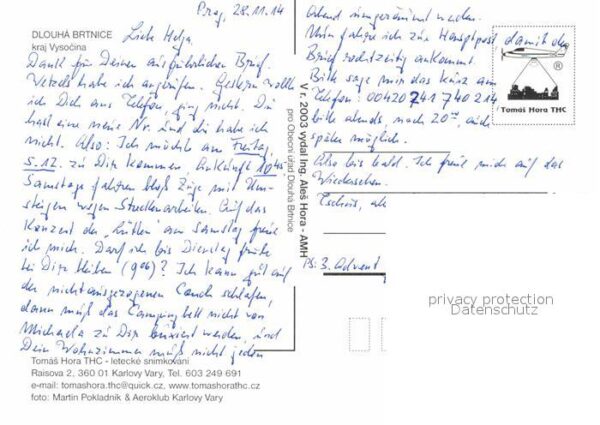 Prag, 28.11.14
DLOUHÁ BRTNICE
kraj Vysočina
Liebe Helga,
Dank für Deinen ausführlichen Brief.
Vetzels habe ich angerufen. Gestern wollte
ich Dich aus Telefon, ging nicht. Du
hast eine neue Nr. und die habe ich
nicht. Also: Ich möchte am Freitag,
5.12. zu Dir kommen. Ankunft 10
Samstags fahren bloß Züge mit Um-
steigen wegen Streckenarbeiten. Auf das
Konzert der am Samstag freue
ich mich. Darf ich bis Dienstag früh
bei Dir bleiben (9⁰⁶)? Ich kann gut auf
der nichtausgezogenen Couch schlafen,
dann muß das Campingbett nicht von
Michaela zu Dir werden, und
Dein Wohnzimmer muß nicht jeden
Abend umgeräumt werden.
Nun fahre ich zur Hauptpost damit der
Brief rechtzeitig ankommt.
Bitte sage mir das kurz am
Telefon: 00420 241 740 214
bitte abends, nach 20⁰⁰, auch
später möglich.
Also bis bald. Ich freue mich auf das
Wiedersehen.
Tschüs,
PS: 3. Advent
V r. 2003 vydal Ing. Aleš Hora - AMH
pro Obecní úřad Dlouhá Brtnice
®
Tomáš Hora THC
privacy protection
Datenschutz
Tomáš Hora THC - letecké snímkování
Raisova 2, 360 01 Karlovy Vary, Tel. 603 249 691
e-mail: tomashora.thc@quick.cz, www.tomashorathc.cz
foto: Martin Pokladník & Aeroklub Karlovy Vary